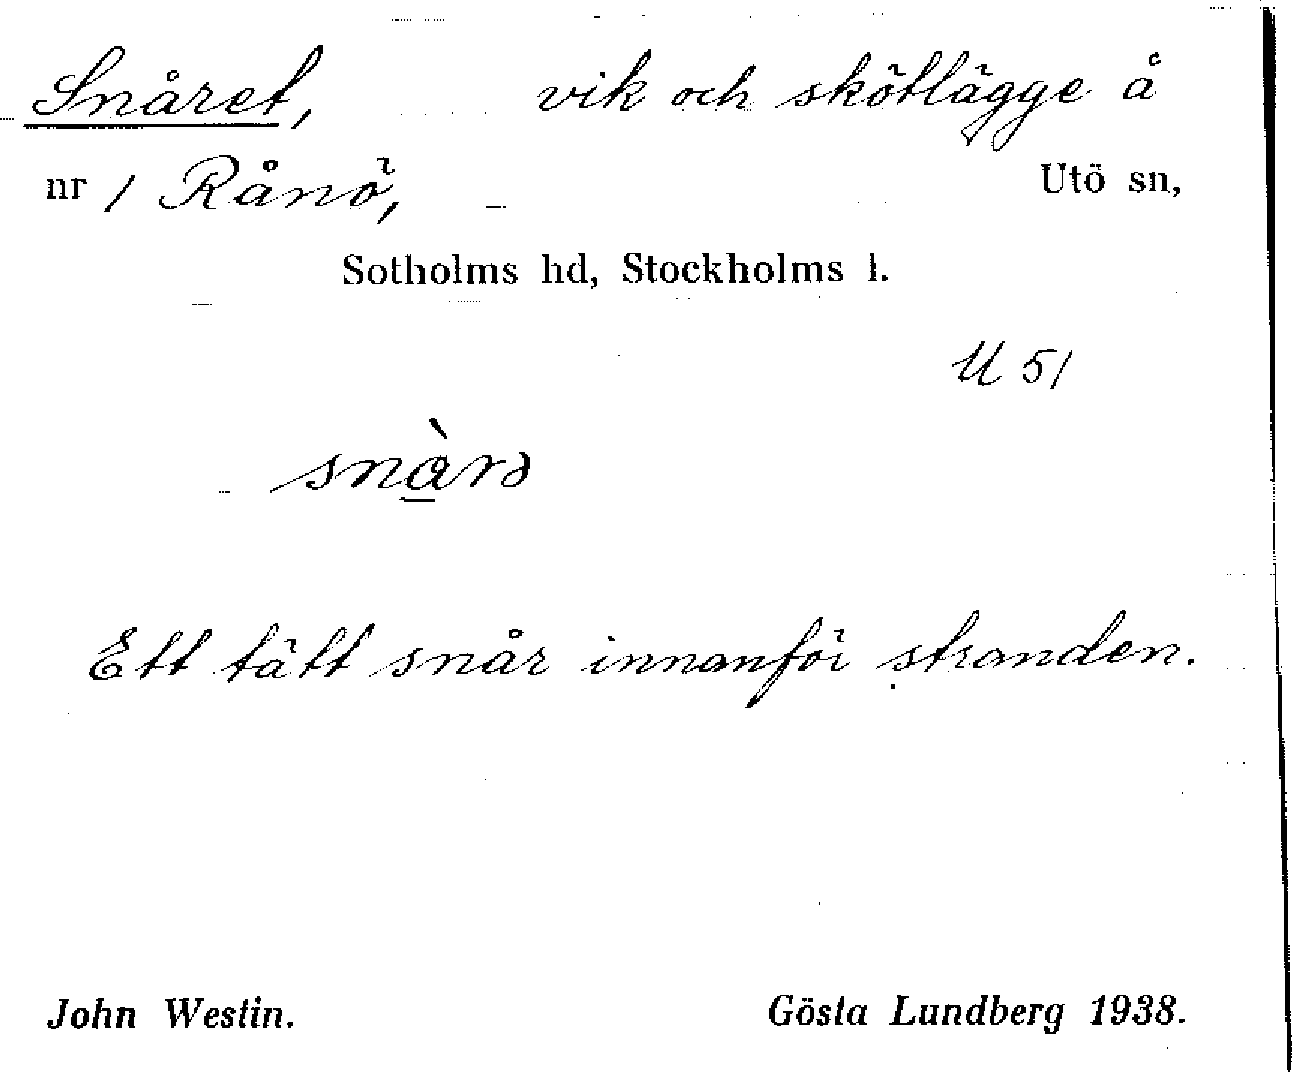 Snåret, vik och skötlägge å
nr 1 Rånö, Utö sn,
Sotholms hd, Stockholms l.
U 51
snà̱rə
Ett tätt snår innanför stranden.
John Westin. Gösta Lundberg 1938.